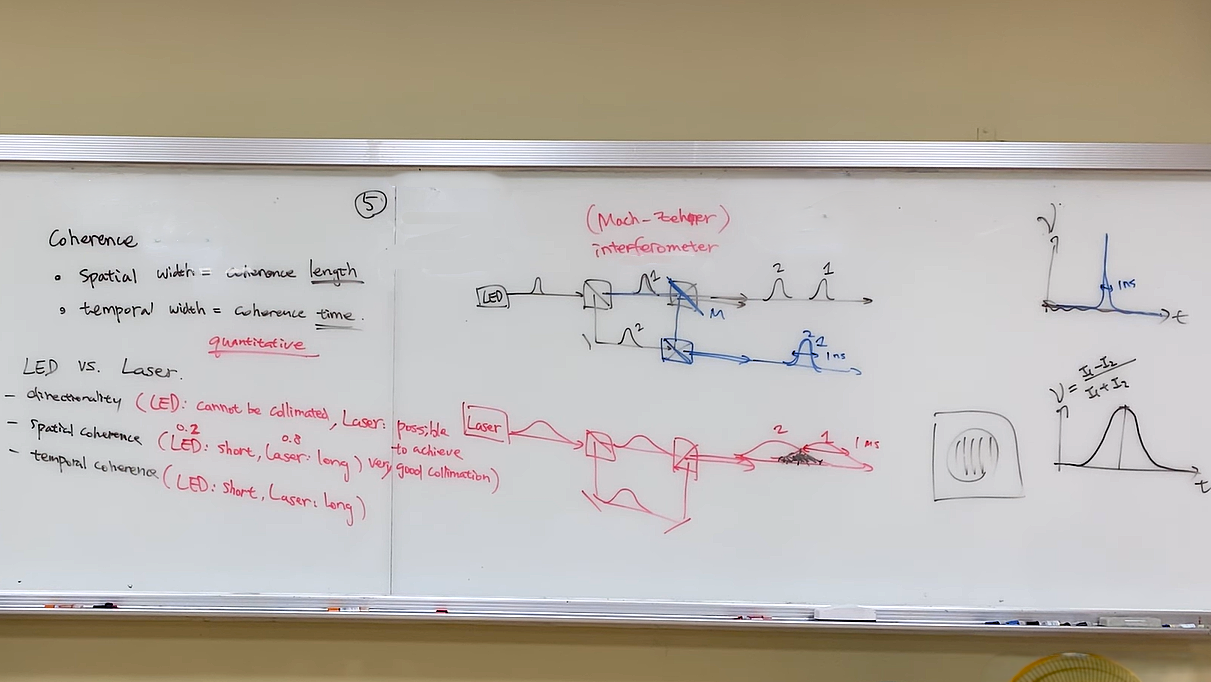 5
Coherence
• spatial width = coherence length
• temporal width = coherence time.
quantitative
LED vs. Laser.
- directionality (LED: cannot be collimated, Laser: possible to achieve very good collimation)
- spatial coherence (LED: short, Laser: long)
0.2 0.8
- temporal coherence (LED: short, Laser: long)
(Mach-Zehnper)
interferometer
LED
1
2
M
2 1
2 1
1ns
Laser
2 1
1 ms
V
1ns
t
V = I1-I2
I1+I2
t